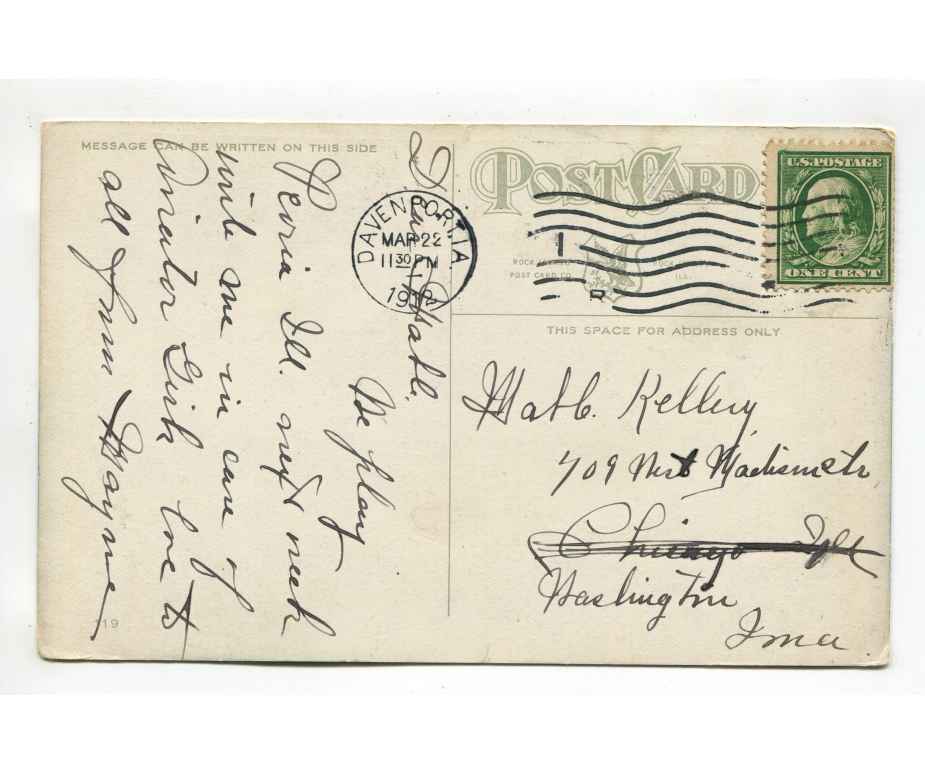 MESSAGE CAN BE WRITTEN ON THIS SIDE
POST CARD
U.S. POSTAGE
ONE CENT
DAVENPORT, IA.
MAR 22
11 30 PM
1912
1
R
ROCK
POST CARD CO.
ILL.
THIS SPACE FOR ADDRESS ONLY
Dear Mable.
We play
Peoria Ill. next week
write me in care of
Girls love to
all from Mayme
Mable Kellery
709 West Madison str
Chicago Ill
Washington
Iowa
119